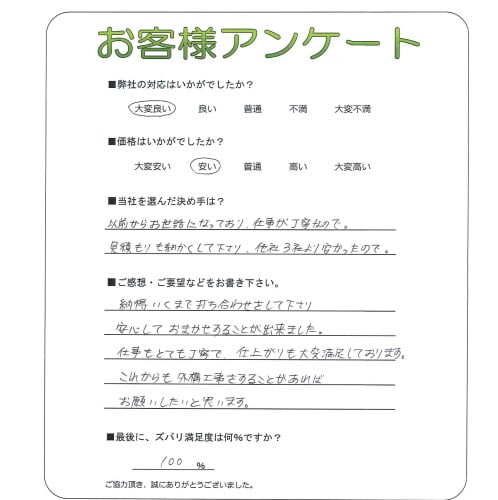 お客様アンケート
■弊社の対応はいかがでしたか？
大変良い 良い 普通 不満 大変不満
■価格はいかがでしたか？
大変安い 安い 普通 高い 大変高い
■当社を選んだ決め手は？
以前からお世話になっており、仕事が丁寧なので。
見積もりも細かくして下さり、他社3社より安かったので。
■ご感想・ご要望などをお書き下さい。
納得いくまで打ち合わせをして下さり
安心しておまかせすることが出来ました。
仕事もとても丁寧で、仕上がりも大変満足しております。
これからも外構工事をすることがあれば
お願いしたいと思います。
■最後に、ズバリ満足度は何％ですか？
100 ％
ご協力頂き、誠にありがとうございました。